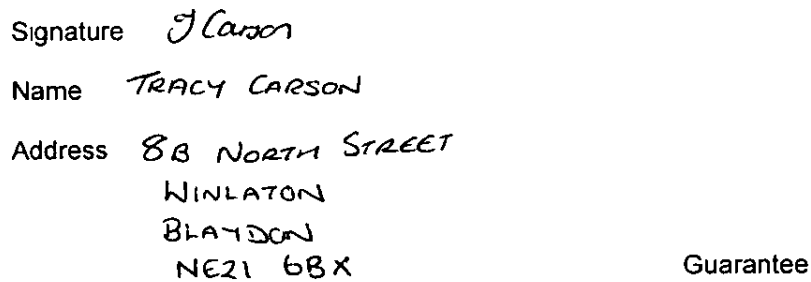 Signature J Carson
Name TRACY CARSON
Address 8B NORTH STREET
WINLATON
BLAYDON
NE21 6BX
Guarantee